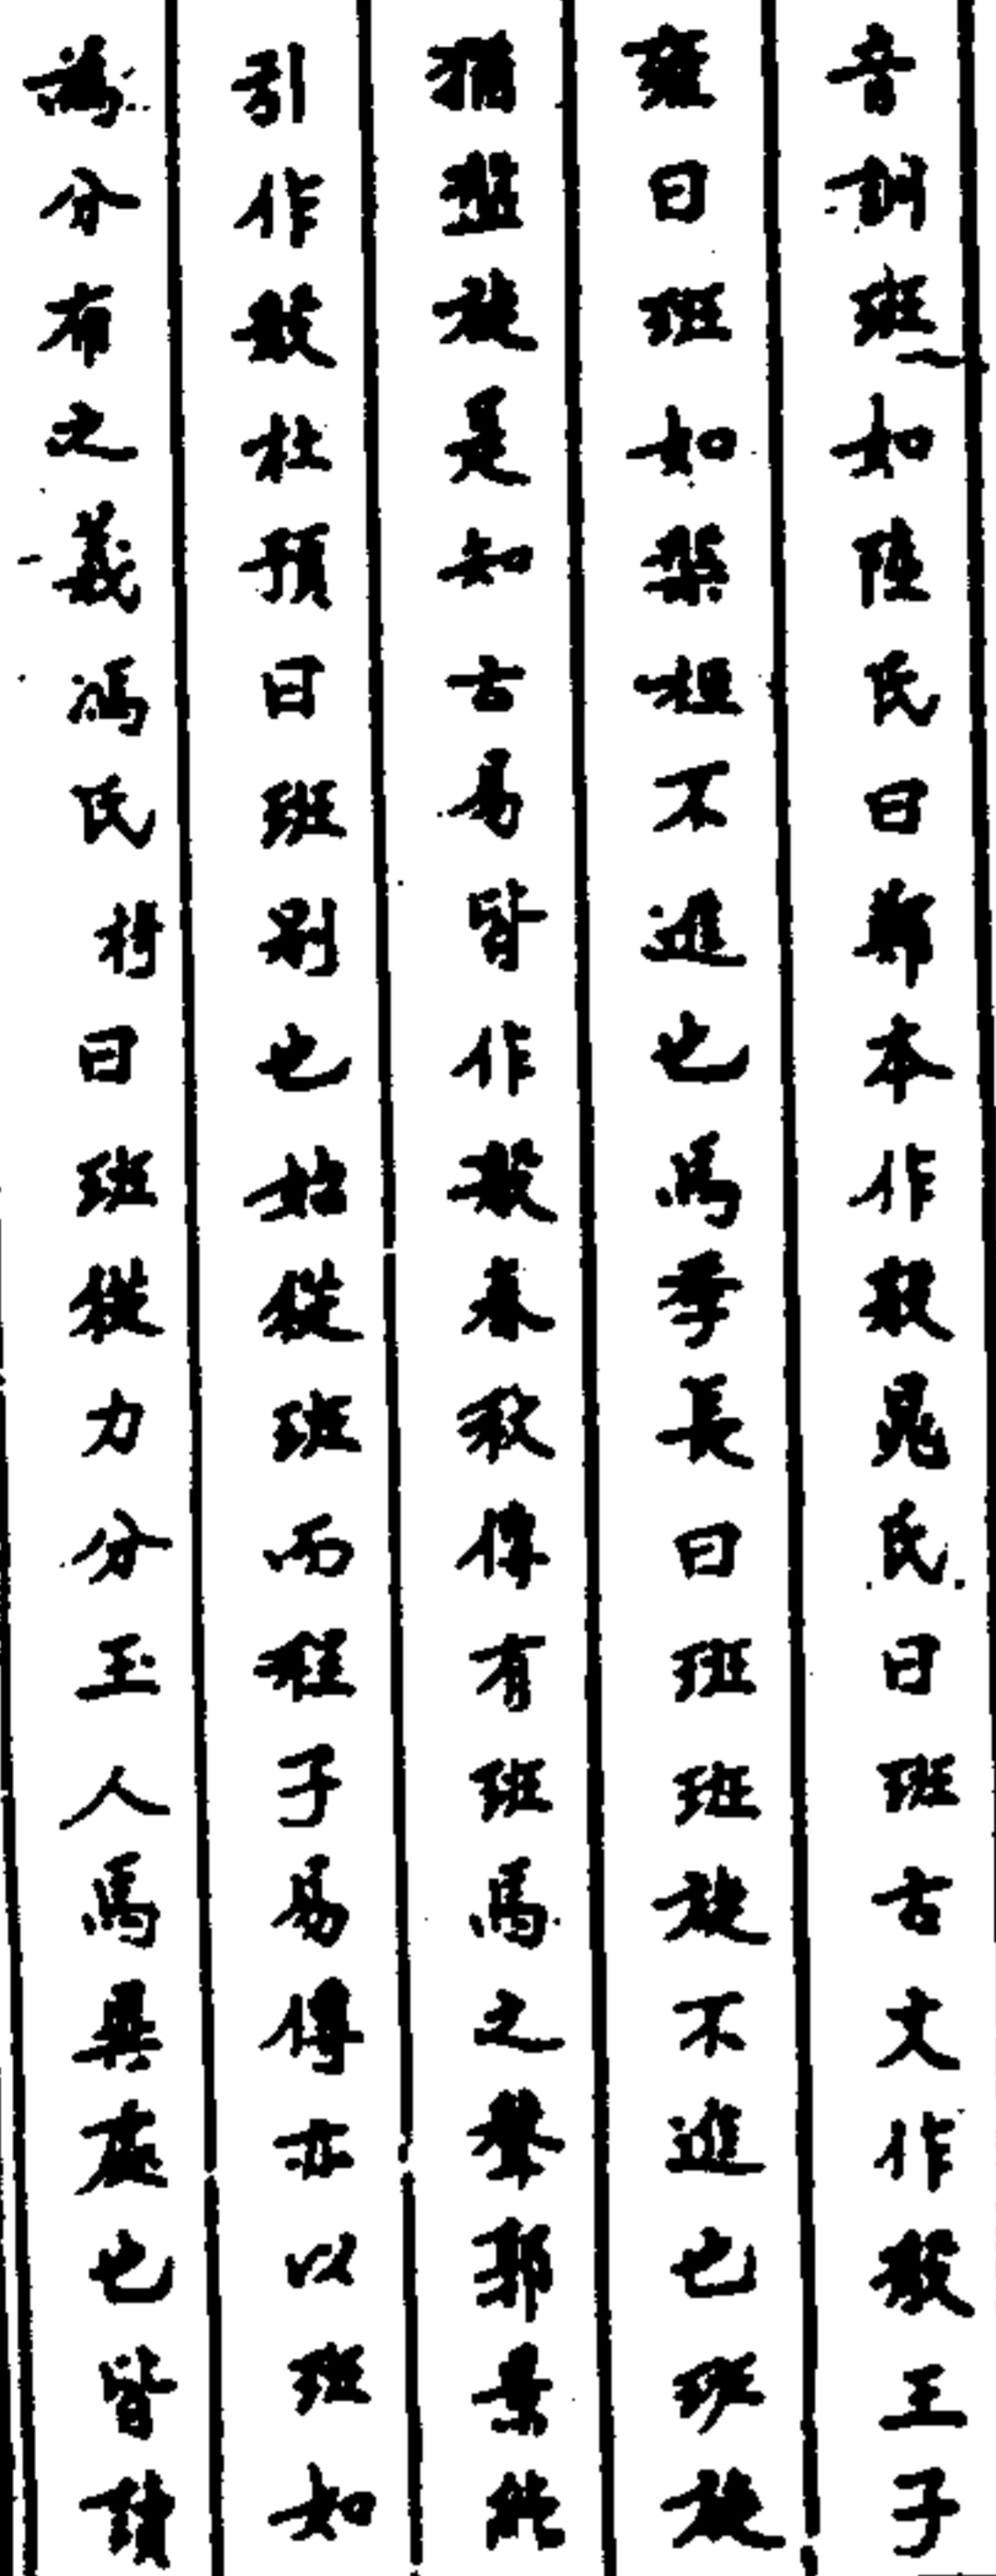 音訓班如陸氏曰鄭本作般晁氏曰班古文作般王子
雍曰班如槃桓不進也馬季長曰班班旋不進也班旋
猶盤旋是知古易皆作般春秋傳有班馬之聲邢景能
引作般杜預曰班別也始從班而程子易傳亦以班如
為分有之義馮氏椅曰班從刀分玉人馬異處也皆讀